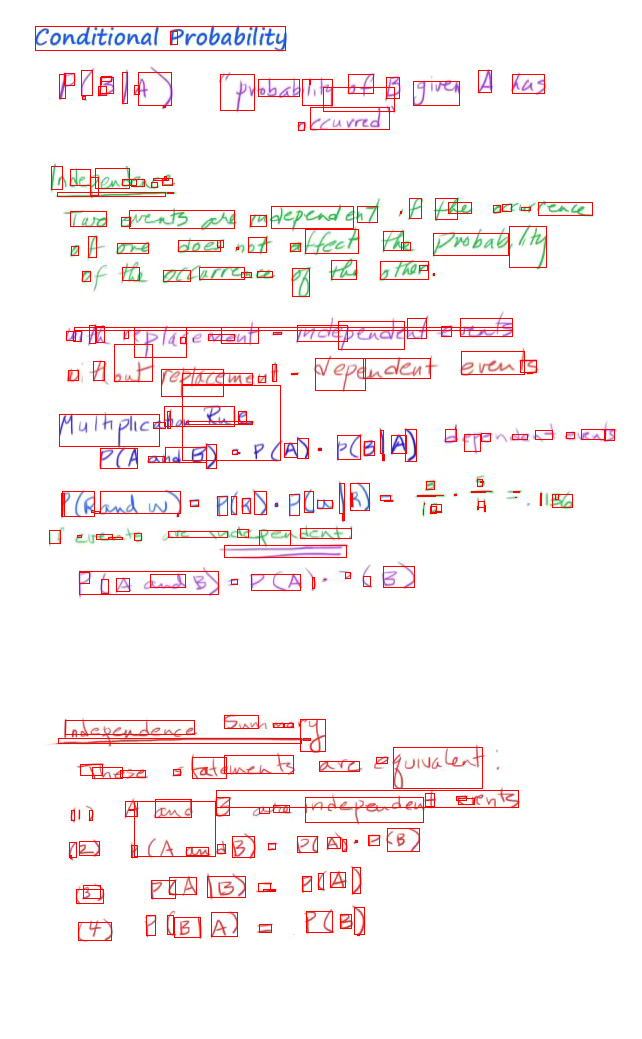 Conditional Probability
P(B|A) "probability of B given A has
occurred"
Independence
Two events are independent if the occurrence
of one does not affect the probability
of the occurrence of the other.
with replacement - independent events
without replacement - dependent events
Multiplication Rule
P(A and B) = P(A) · P(B|A) dependent events
P(R and W) = P(R) · P(W|R) = 3/12 · 5/11 = .1136
if events are independent
P(A and B) = P(A) · P(B)
Independence Summary
These statements are equivalent:
(1) A and B are independent events
(2) P(A and B) = P(A) · P(B)
(3) P(A|B) = P(A)
(4) P(B|A) = P(B)